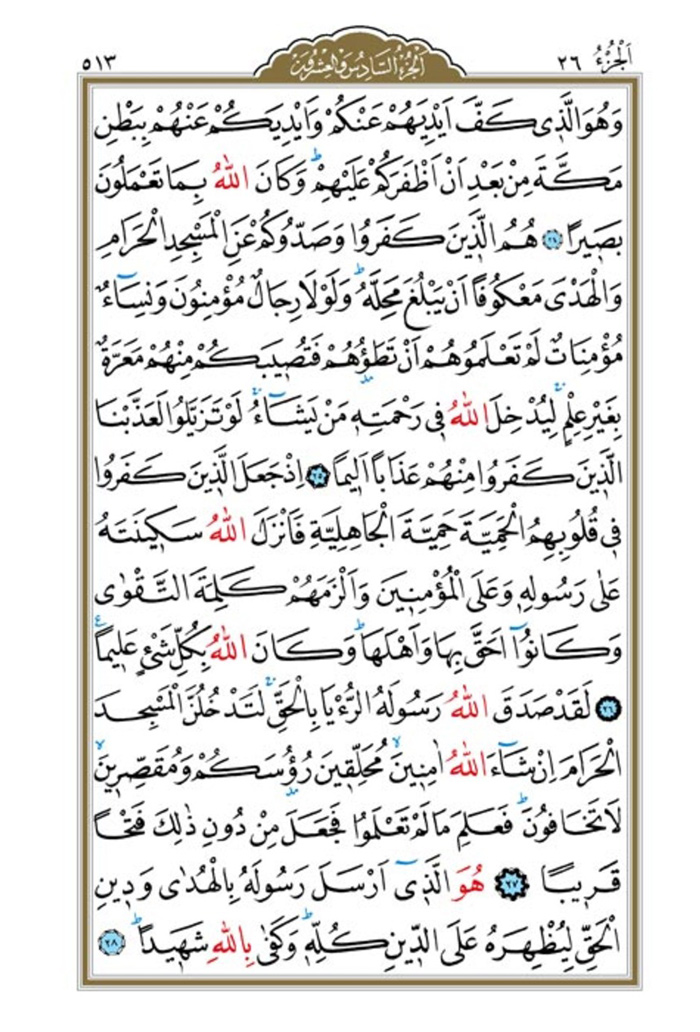 اَلْجُزْءُ ٢٦
اَلْجُزْءُ السَّادِسُ وَالْعِشْرُونَ
٥١٣
وَهُوَ الَّذٖى كَفَّ اَيْدِيَهُمْ عَنْكُمْ وَاَيْدِيَكُمْ عَنْهُمْ بِبَطْنِ
مَكَّةَ مِنْ بَعْدِ اَنْ اَظْفَرَكُمْ عَلَيْهِمْ ؕ وَكَانَ اللّٰهُ بِمَا تَعْمَلُونَ
بَصٖيرًا ﴿٢٤﴾ هُمُ الَّذٖينَ كَفَرُوا وَصَدُّوكُمْ عَنِ الْمَسْجِدِ الْحَرَامِ
وَالْهَدْىَ مَعْكُوفًا اَنْ يَبْلُغَ مَحِلَّهُ ؕ وَلَوْلَا رِجَالٌ مُؤْمِنُونَ وَنِسَٓاءٌ
مُؤْمِنَاتٌ لَمْ تَعْلَمُوهُمْ اَنْ تَطَؤُ۫هُمْ فَتُصٖيبَكُمْ مِنْهُمْ مَعَرَّةٌ
بِغَيْرِ عِلْمٍ لِيُدْخِلَ اللّٰهُ فٖى رَحْمَتِهٖ مَنْ يَشَٓاءُ لَوْ تَزَيَّلُوا لَعَذَّبْنَا
الَّذٖينَ كَفَرُوا مِنْهُمْ عَذَابًا اَلٖيمًا ﴿٢٥﴾ اِذْ جَعَلَ الَّذٖينَ كَفَرُوا
فٖى قُلُوبِهِمُ الْحَمِيَّةَ حَمِيَّةَ الْجَاهِلِيَّةِ فَاَنْزَلَ اللّٰهُ سَكٖينَتَهُ
عَلٰى رَسُولِهٖ وَعَلَى الْمُؤْمِنٖينَ وَاَلْزَمَهُمْ كَلِمَةَ التَّقْوٰى
وَكَانُٓوا اَحَقَّ بِهَا وَاَهْلَهَا ؕ وَكَانَ اللّٰهُ بِكُلِّ شَىْءٍ عَلٖيمًا
﴿٢٦﴾ لَقَدْ صَدَقَ اللّٰهُ رَسُولَهُ الرُّءْيَا بِالْحَقِّ لَتَدْخُلُنَّ الْمَسْجِدَ
الْحَرَامَ اِنْ شَٓاءَ اللّٰهُ اٰمِنٖينَ مُحَلِّقٖينَ رُؤُسَكُمْ وَمُقَصِّرٖينَ
لَا تَخَافُونَ ؕ فَعَلِمَ مَا لَمْ تَعْلَمُوا فَجَعَلَ مِنْ دُونِ ذٰلِكَ فَتْحًا
قَرٖيبًا ﴿٢٧﴾ هُوَ الَّذٖٓى اَرْسَلَ رَسُولَهُ بِالْهُدٰى وَدٖينِ
الْحَقِّ لِيُظْهِرَهُ عَلَى الدّٖينِ كُلِّهٖ ؕ وَكَفٰى بِاللّٰهِ شَهٖيدًا ؕ ﴿٢٨﴾